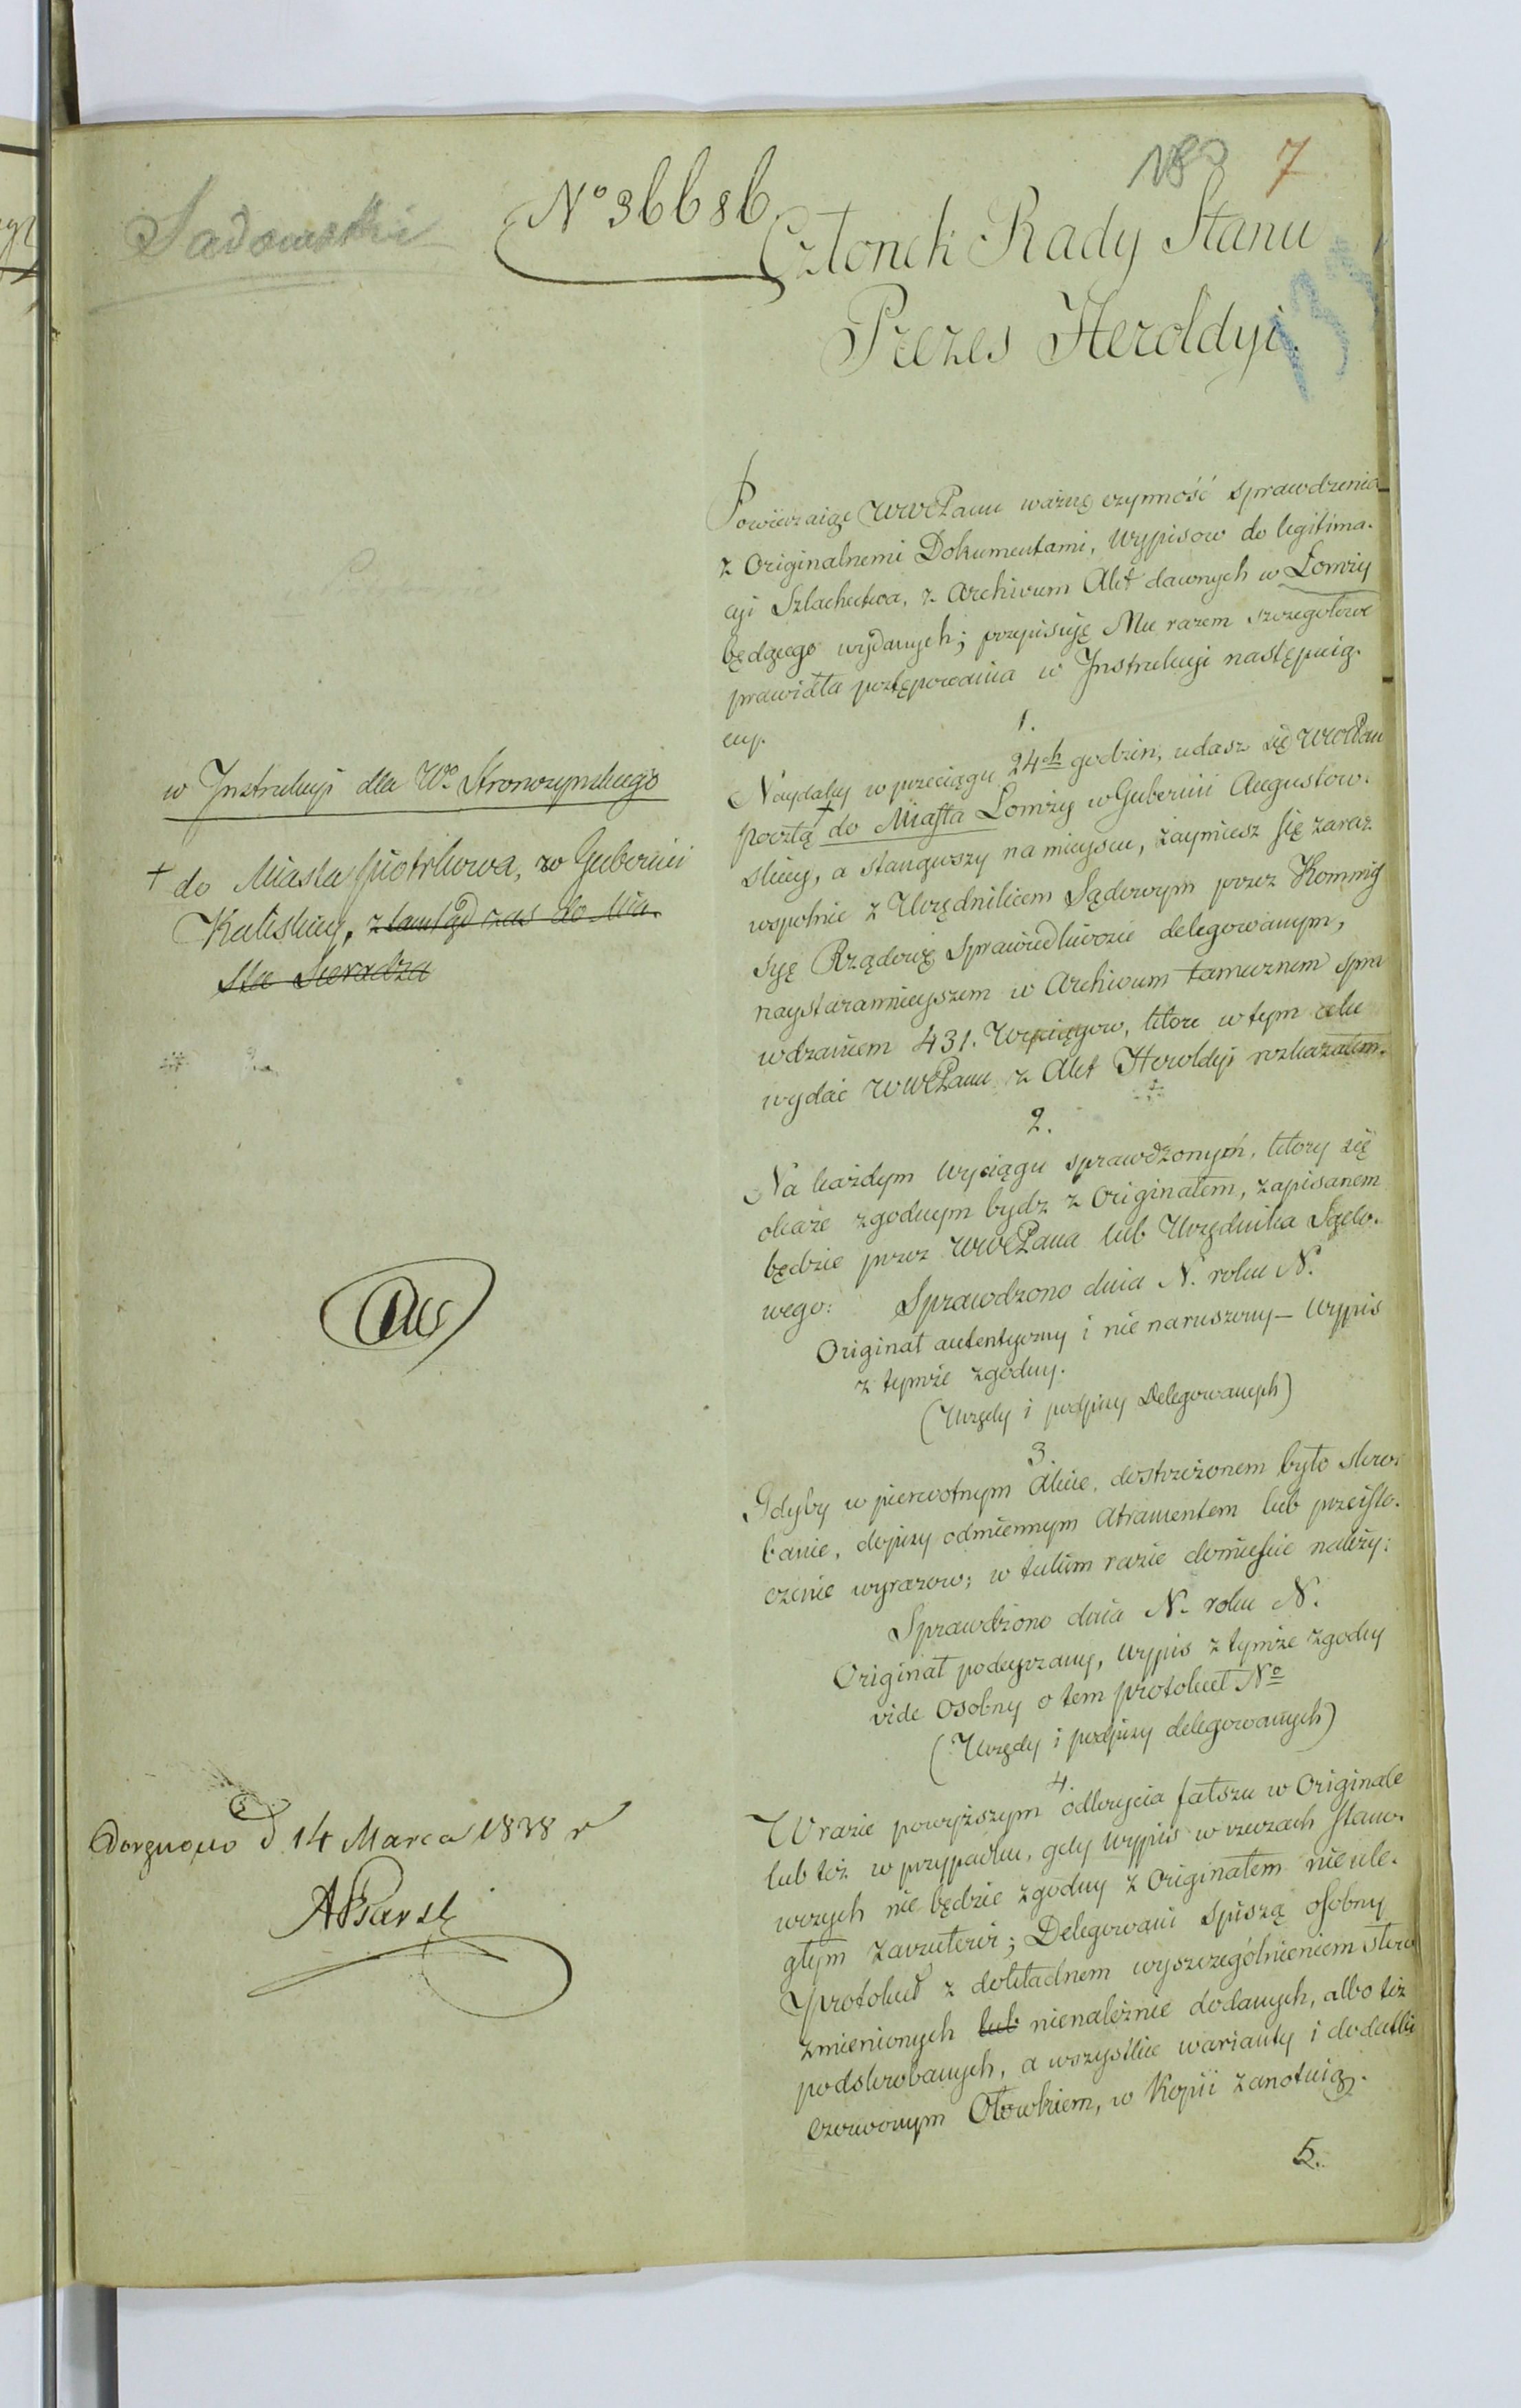 Sadowski
N° 36686
7
Członek Rady Stanu
Prezes Heroldyi.
Powierzaiąc WWPanu ważną czynność sprawdzenia
z Originalnemi Dokumentami, Wypisow do legitima-
cyi Szlachectwa, z Archivum Akt dawnych w Łomży
będącego wydanych; przepisuię Mu razem szczegołowe
prawidła postępowania w Instrukcyi następuią-
cey.
1.
Naydaley w przeciągu 24ch godzin, udasz się WWPan
pocztą + do Miasta Łomży w Gubernii Augustow-
skiey, a stanąwszy na mieyscu, zaymiesz się zaraz
wspolnie z Urzędnikiem Sądowym przez Kommis
syę Rządową Sprawiedliwości delegowanym,
naystaranniejszem w Archivum tamecznem spra
wdzaniem 431. Wyciągow, ktore w tym celu
wydać WWPanu z Akt Heroldyi rozkazałem.
2.
Na każdym Wyciągu sprawdzonym, ktory się
okaże zgodnym bydz z Originałem, zapisanem
będzie przez WWPana lub Urzędnika Sądo-
wego: Sprawdzono dnia N. roku N.
Originał autentyczny i nie naruszony – Wypis
z tymże zgodny.
(Urzędy i podpisy Delegowanych)
3.
Gdyby w pierwotnym Akcie, dostrzeżonem było skro-
banie, dopisy odmiennym Atramentem lub przeisto-
czenie wyrazow; w takim razie domieścić należy:
Sprawdzono dnia N. roku N.
Originał podeyrzany, Wypis z tymże zgodny
vide Osobny o tem protokuł No
(Urzędy i podpisy delegowanych)
4.
W razie powyższym odkrycia fałszu w Originale
lub też w przypadku, gdy Wypis w rzeczach stano-
wczych nie będzie zgodny z Originałem nieule-
głym zarzutowi; Delegowani spiszą osobny
Protokuł z dokładnem wyszczególnieniem słow
zmienionych lub nienależnie dodanych, albo też
podskrobanych, a wszystkie warianty i dodatki
czerwonym Ołowkiem, w Kopii zanotuią.
5.
w Instrukcyi dla Wo Stronczynskiego
+ do Miasta Piotrkowa, w Gubernii
Kaliskiey, z tamtąd zas do Mia-
sta Sieradza
d 14 Marca 1838 r